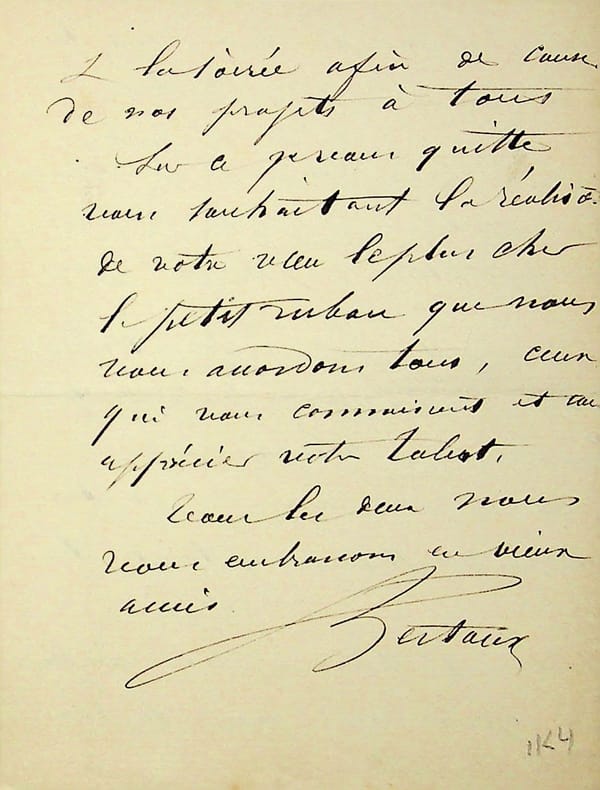 la soirée afin de cause
de nos projets à tous
Sur ce je vous quitte
vous souhaitant la réalisa
de votre vœu le plus cher
le petit ruban que nous
vous accordons tous, ceux
qui vous connaissent et
apprécier votre talent.
Tous les deux nous
vous embrassons en vieux
amis
Bertaux
1K4